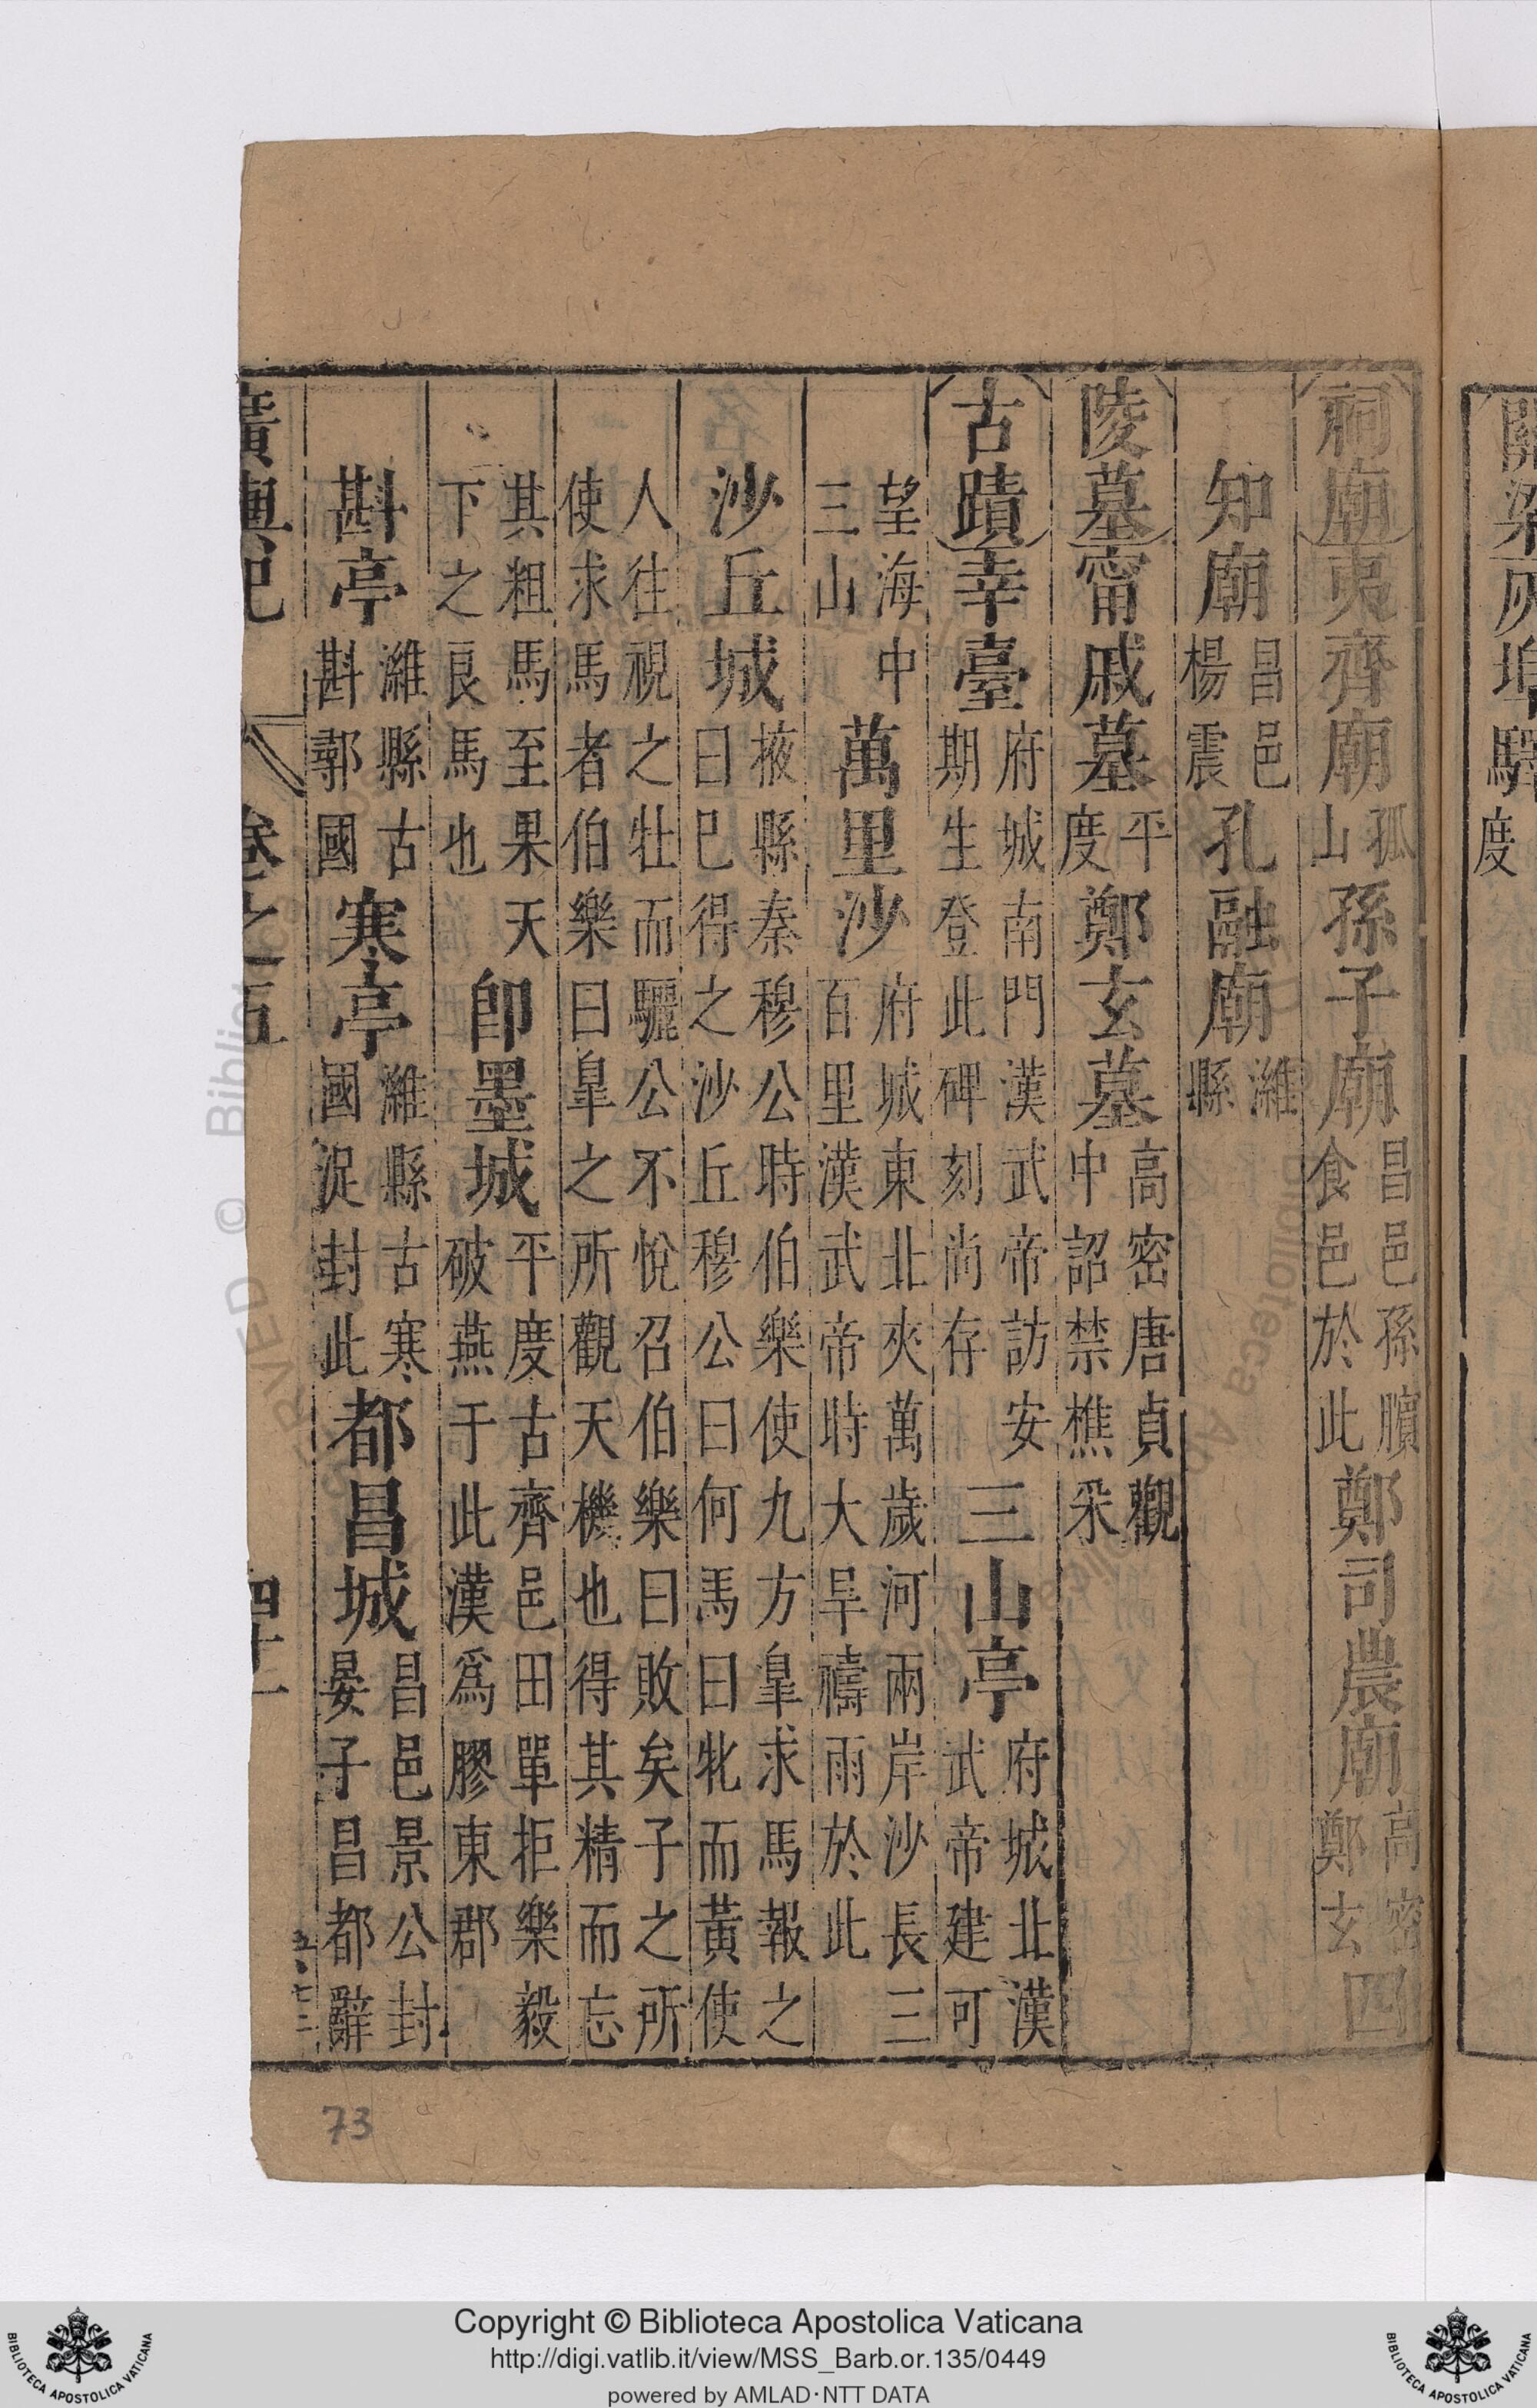 關梁灰埠驛度
祠廟夷齊廟孤山孫子廟昌邑孫臏食邑於此鄭司農廟高密鄭玄四
知廟昌邑楊震孔融廟濰縣
陵墓甯戚墓平度鄭玄墓高密唐貞觀中詔禁樵采
古蹟幸臺府城南門漢武帝訪安期生登此碑刻尚存三山亭府城北漢武帝建可
望海中三山萬里沙府城東北夾萬歲河兩岸沙長三百里漢武帝時大旱禱雨於此
沙丘城掖縣秦穆公時伯樂使九方臯求馬報之曰巳得之沙丘穆公曰何馬曰牝而黃使
人往視之牡而驪公不悅召伯樂曰敗矣子之所使求馬者伯樂曰臯之所觀天機也得其精而忘
其粗馬至果天下之良馬也卽墨城平度古齊邑田單拒樂毅破燕于此漢爲膠東郡
斟亭濰縣古斟鄩國寒亭濰縣古寒國浞封此都昌城昌邑景公封晏子昌都辭
廣輿記 卷之五 四十一
73
Copyright © Biblioteca Apostolica Vaticana
http://digi.vatlib.it/view/MSS_Barb.or.135/0449
powered by AMLAD·NTT DATA
BIBLIOTECA APOSTOLICA VATICANA
BIBLIOTECA APOSTOLICA VATICANA